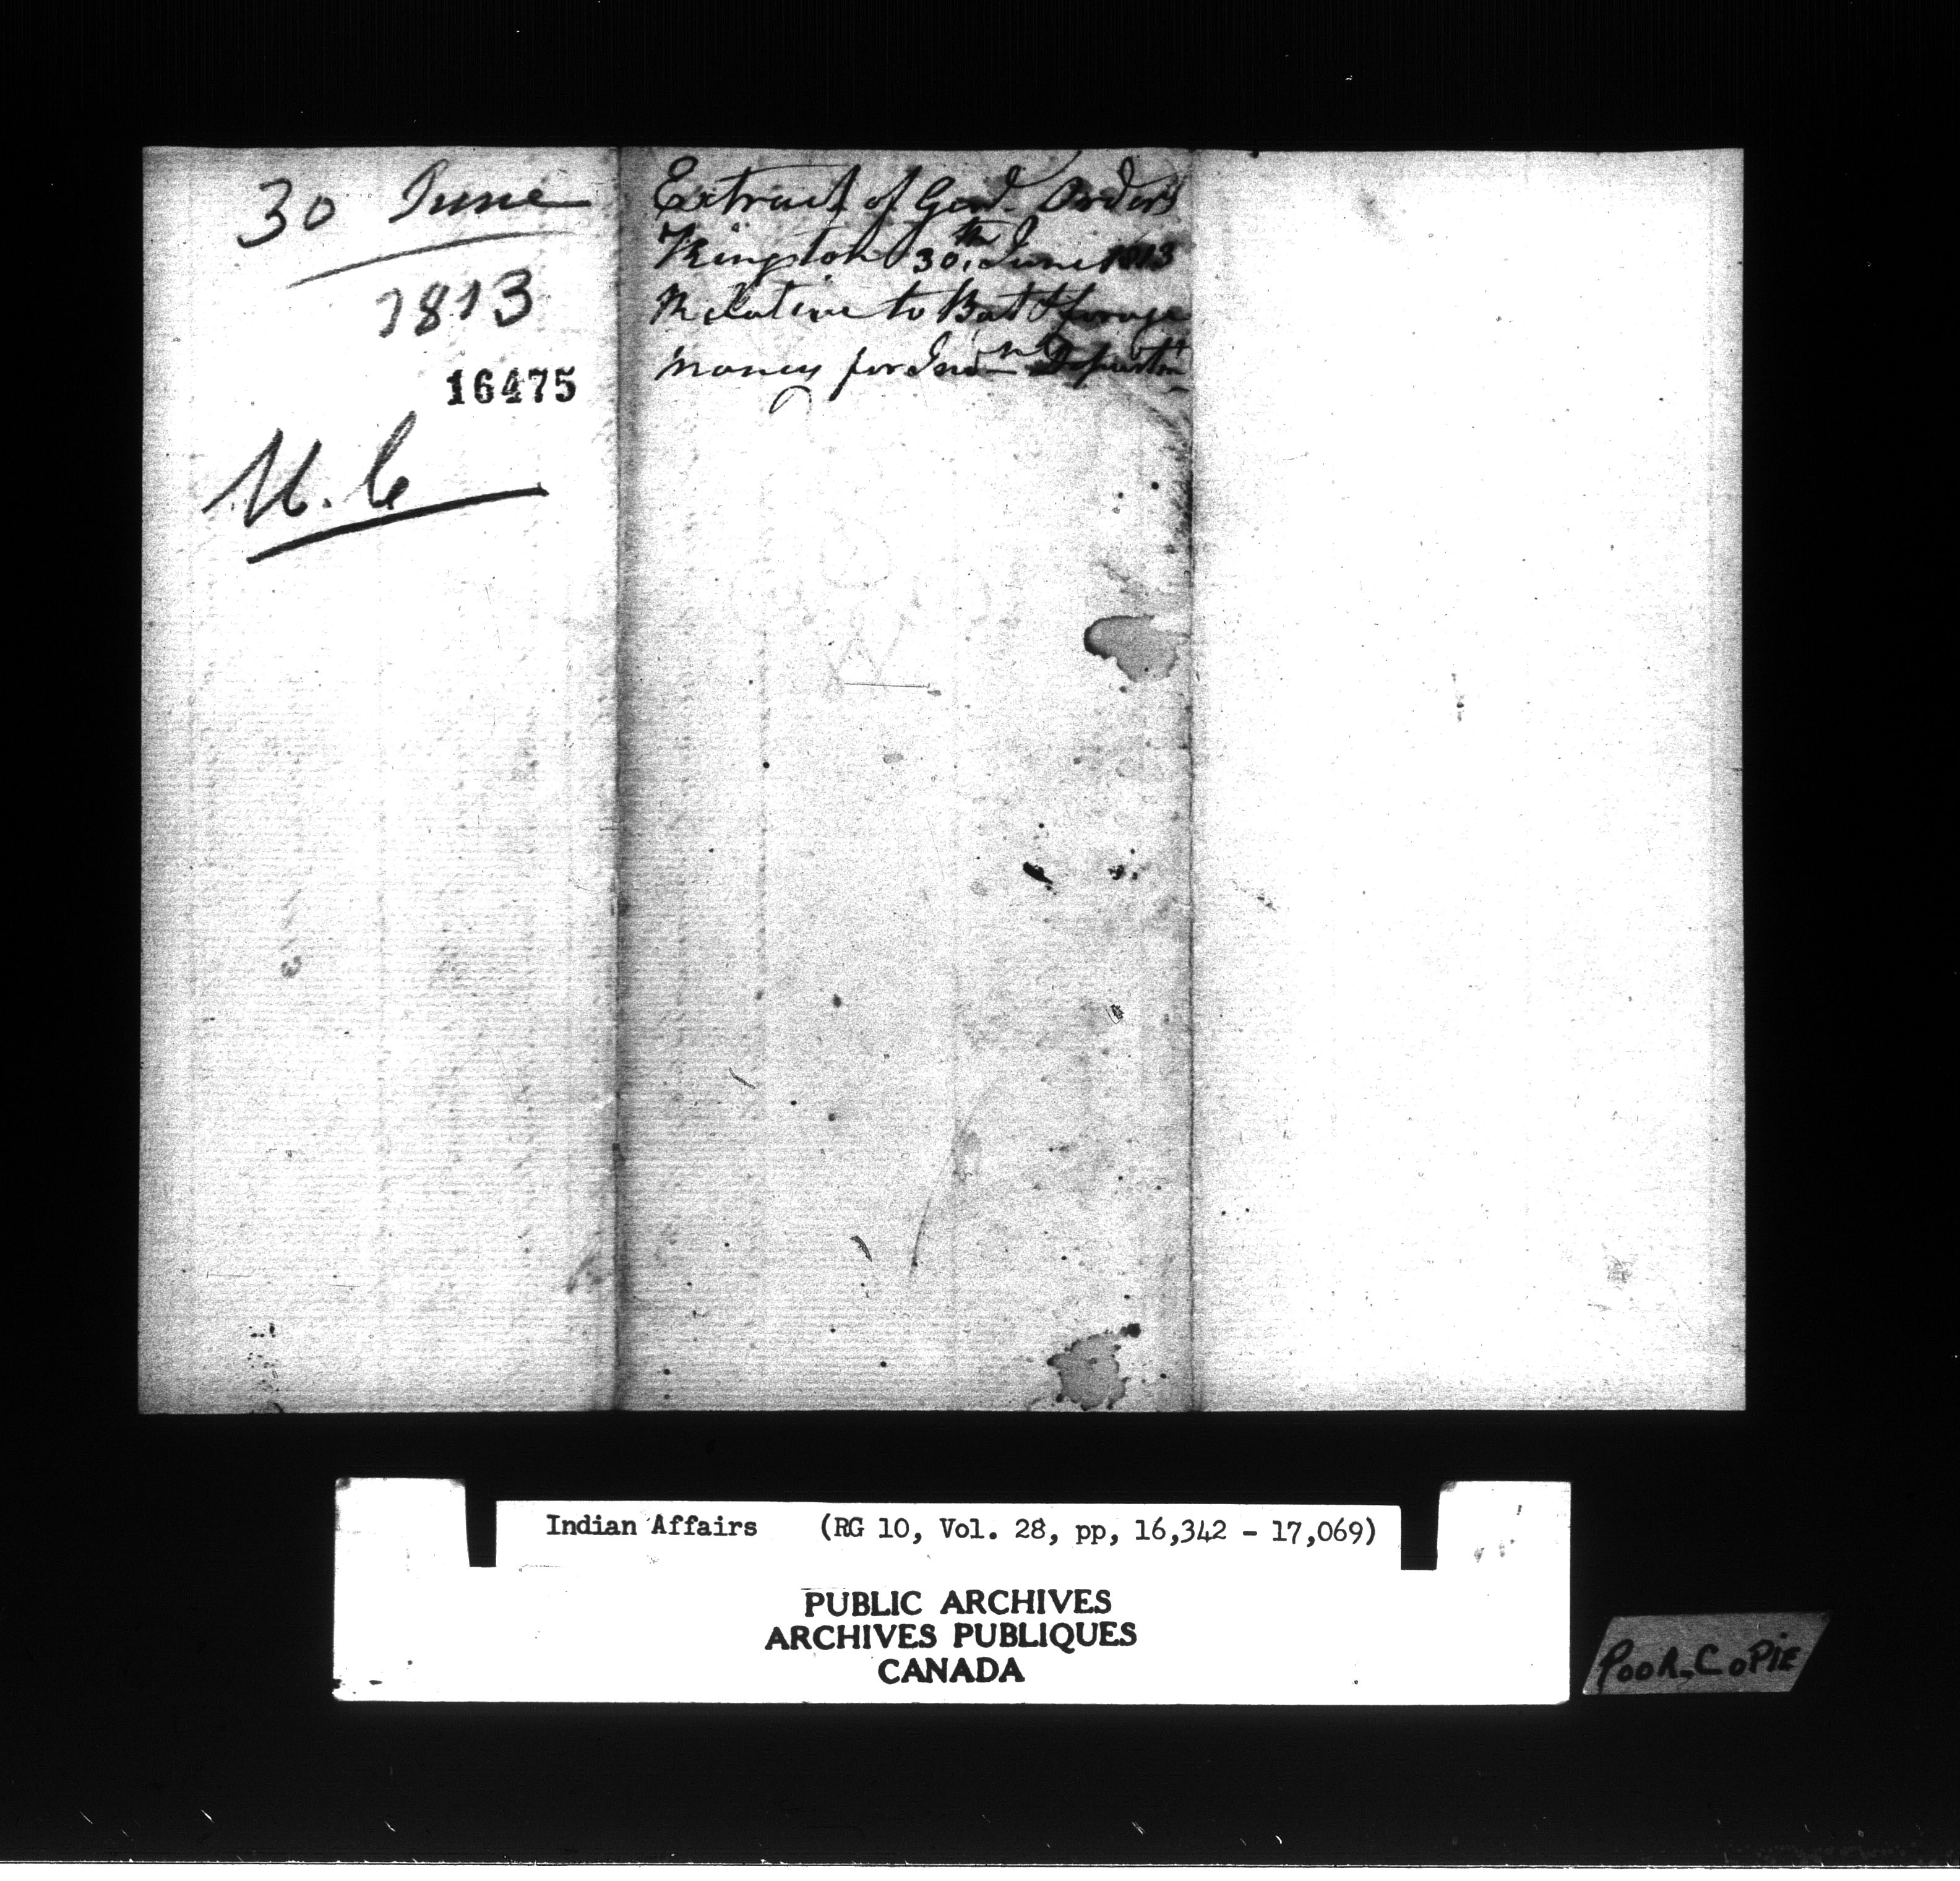 30 June
1813
16475
U.C
Extract of Genl. Orders
Kingston 30th. June 1813
Relative to Bat & forage
money for Indn Departmt
Indian Affairs (RG 10, Vol. 28, pp, 16,342 - 17,069)
PUBLIC ARCHIVES
ARCHIVES PUBLIQUES
CANADA
POOR COPIE